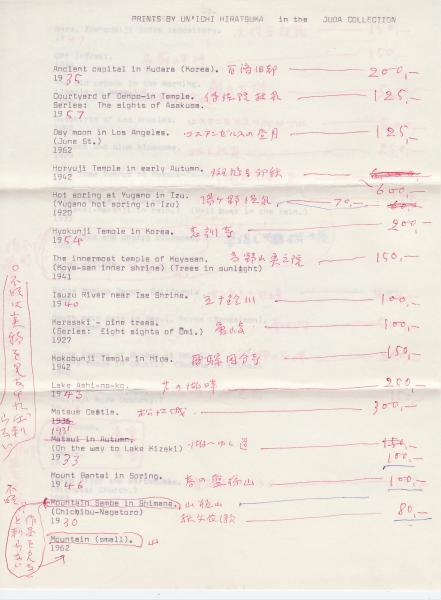 PRINTS BY UN'ICHI HIRATSUKA in the JUDA COLLECTION
Ancient capital in Kudara (Korea). 百済旧都 200,-
1935
Courtyard of Denpo-in Temple. 125,-
Series: The sights of Asakusa.
1957
Day moon in Los Angeles. ロスアンゼルスの昼月 125,-
(June St.)
1962
Horyuji Temple in early Autumn.
1942
600,-
Hot spring at Yugano in Izu. 70,-
(Yugano hot spring in Izu)
1920
Hyokunji Temple in Korea. 表訓寺 200,-
1954
The innermost temple of Koyasan. 高野山奥之院 150,-
(Koya-san inner shrine) (Trees in sunlight)
1941
Isuzu River near Ise Shrine. 五十鈴川 100,-
1940
Karasaki - pine trees. 100,-
(Series: Eight sights of Omi.)
1927
Kokobunji Temple in Hida. 飛騨国分寺 150,-
1942
Lake Ashi-no-ko. 芦の湖畔 250,-
1943
Matsue Castle. 松江城 300,-
1935
1931
Matsui in Autumn. 湖へゆく道 150,-
(On the way to Lake Kizaki) 100,-
1933
Mount Bantai in Spring. 春の磐梯山 100,-
1946
Mountain Sambe in Shimane. 山
(Chichibu-Nagatoro) 80,-
1930
Mountain (small). 山
1962